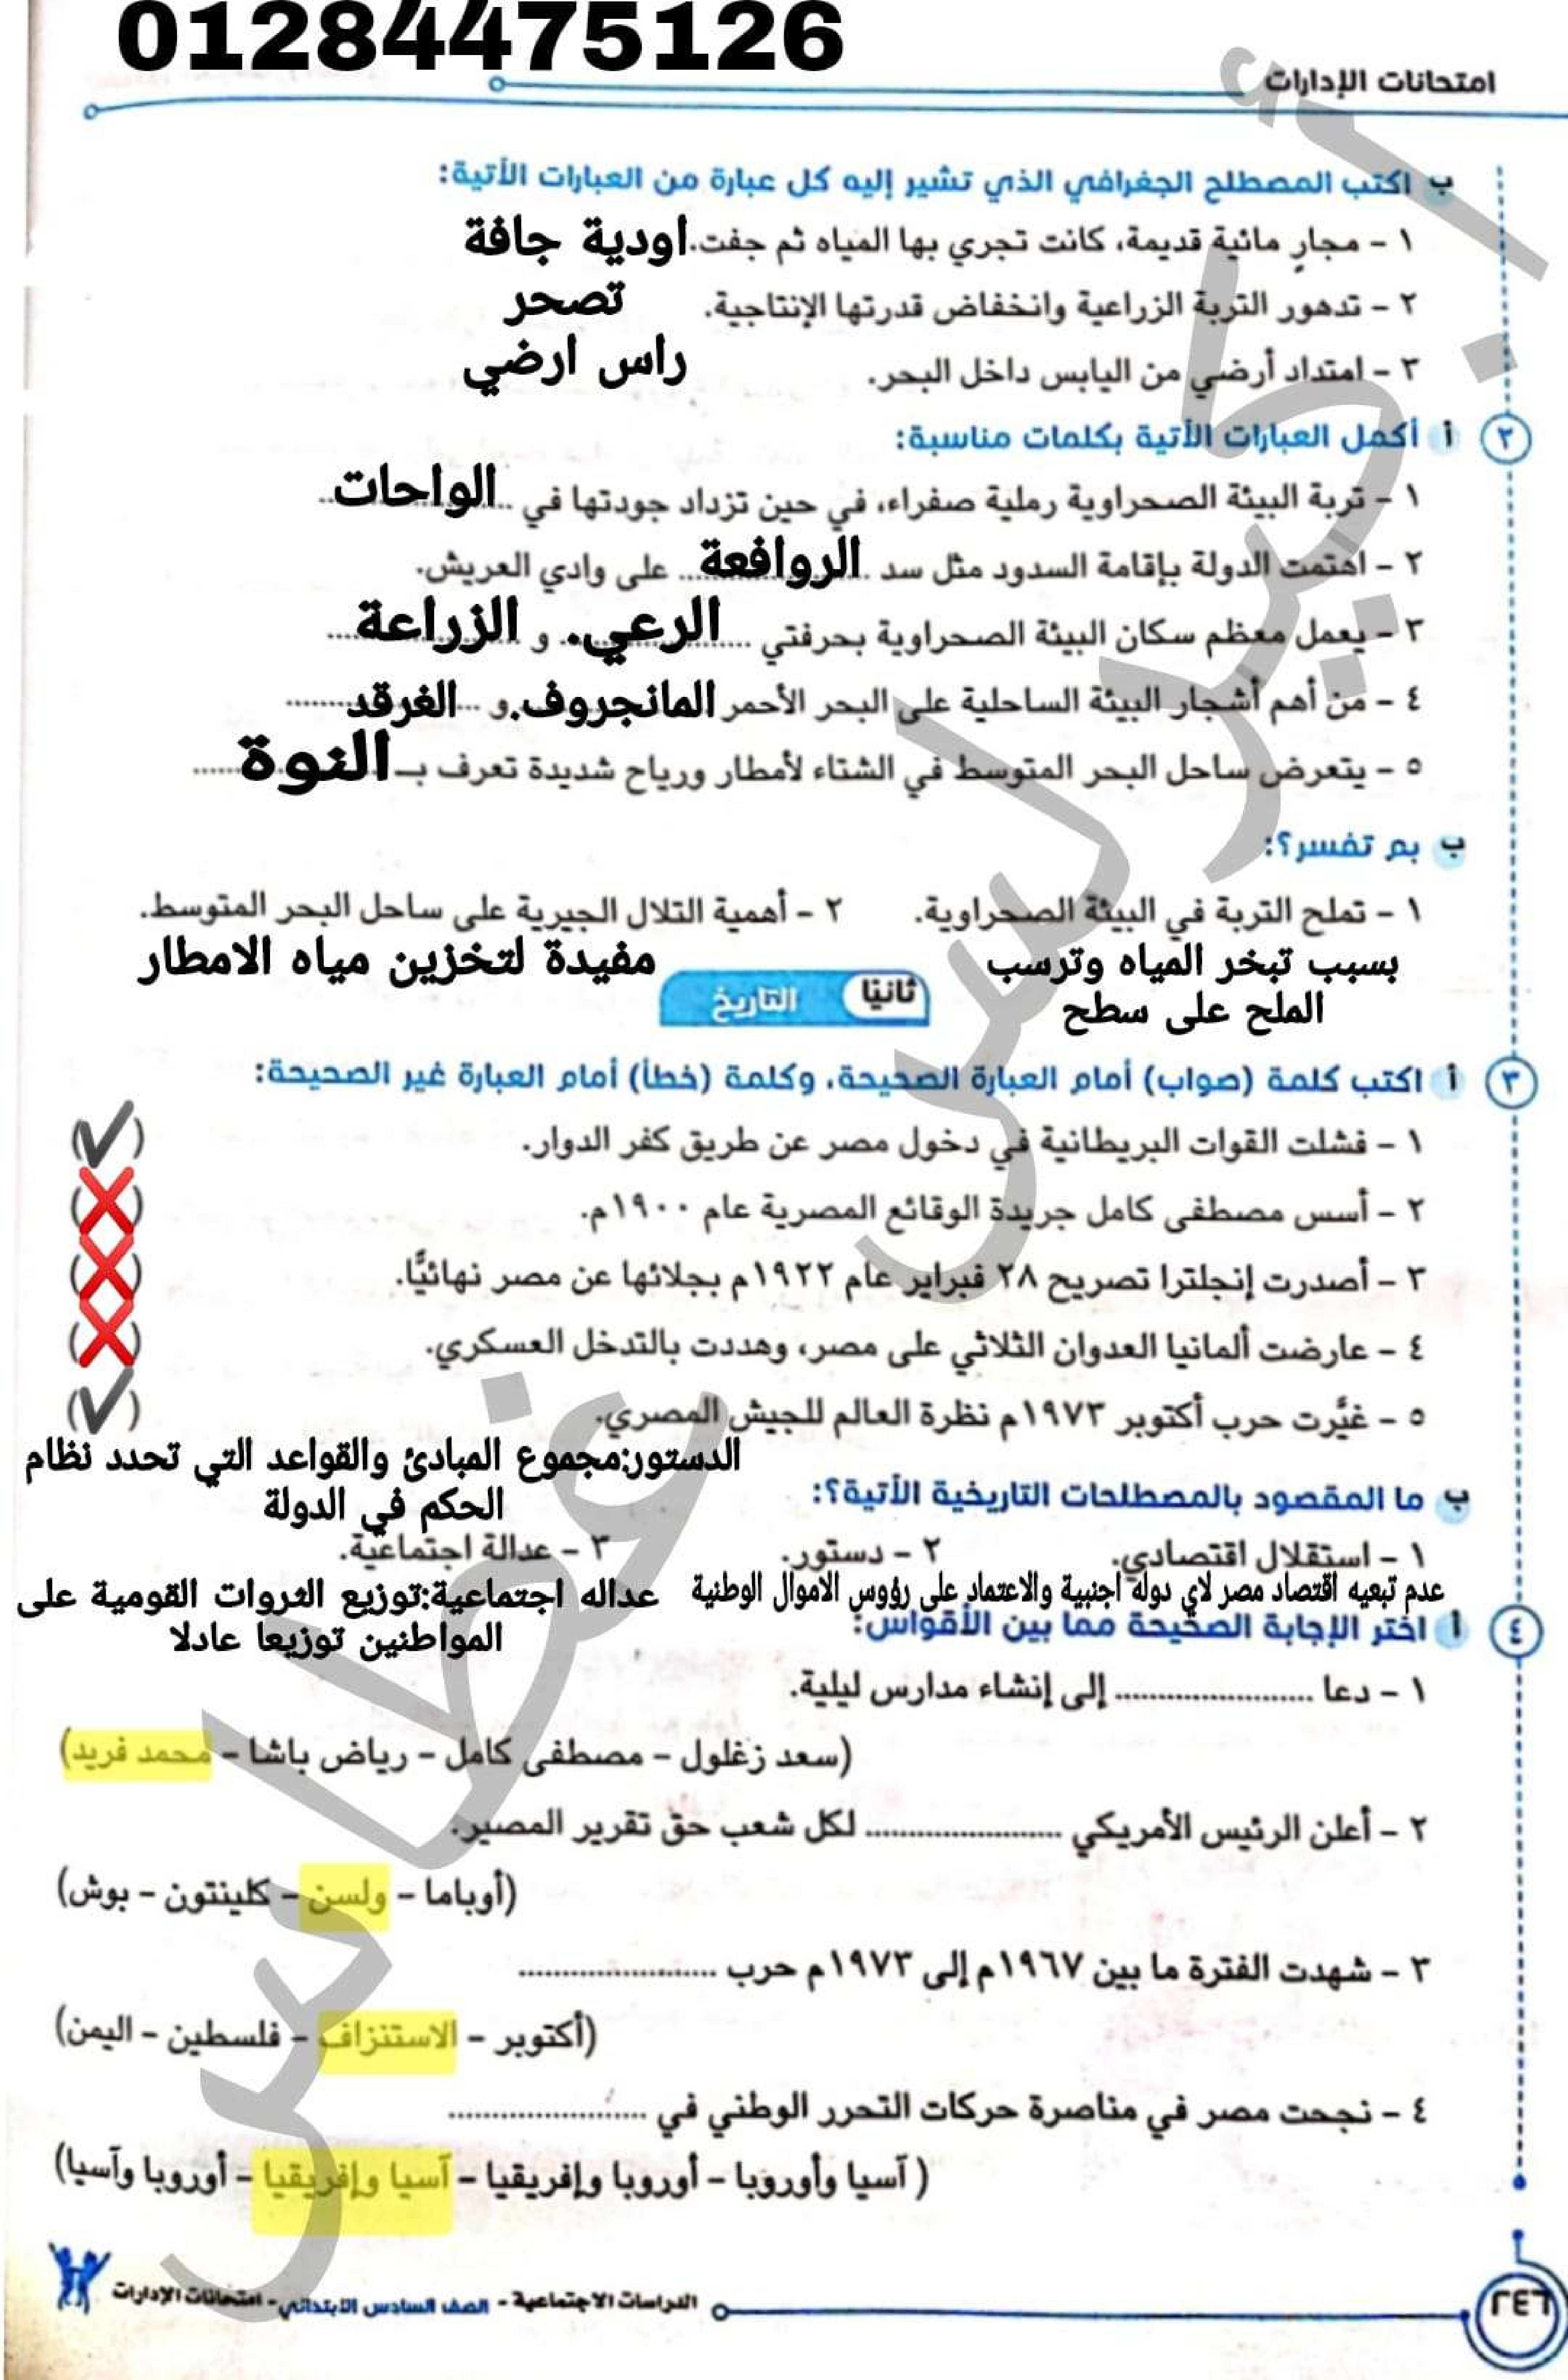 01284475126
امتحانات الإدارات
ب اكتب المصطلح الجغرافي الذي تشير إليه كل عبارة من العبارات الأتية:
١ - مجارٍ مائية قديمة، كانت تجري بها المياه ثم جفت. اودية جافة
٢ - تدهور التربة الزراعية وانخفاض قدرتها الإنتاجية. تصحر
٣ - امتداد أرضي من اليابس داخل البحر. راس ارضي
٢ أ أكمل العبارات الأتية بكلمات مناسبة:
١ - تربة البيئة الصحراوية رملية صفراء، في حين تزداد جودتها في ........ الواحات
٢ - اهتمت الدولة بإقامة السدود مثل سد ........ الروافعة على وادي العريش.
٣ - يعمل معظم سكان البيئة الصحراوية بحرفتي ........ الرعي. و الزراعة ........
٤ - من أهم أشجار البيئة الساحلية على البحر الأحمر المانجروف. و الغرقد ........
٥ - يتعرض ساحل البحر المتوسط في الشتاء لأمطار ورياح شديدة تعرف بـ النوة ........
ب بم تفسر؟:
١ - تملح التربة في البيئة الصحراوية. ٢ - أهمية التلال الجيرية على ساحل البحر المتوسط.
بسبب تبخر المياه وترسب مفيدة لتخزين مياه الامطار
الملح على سطح
ثانيًا التاريخ
٣ أ اكتب كلمة (صواب) أمام العبارة الصحيحة، وكلمة (خطأ) أمام العبارة غير الصحيحة:
١ - فشلت القوات البريطانية في دخول مصر عن طريق كفر الدوار. (✓)
٢ - أسس مصطفى كامل جريدة الوقائع المصرية عام ١٩٠٠م. (❌)
٣ - أصدرت إنجلترا تصريح ٢٨ فبراير عام ١٩٢٢م بجلائها عن مصر نهائيًّا. (❌)
٤ - عارضت ألمانيا العدوان الثلاثي على مصر، وهددت بالتدخل العسكري. (❌)
٥ - غيَّرت حرب أكتوبر ١٩٧٣م نظرة العالم للجيش المصري. (✓)
الدستور:مجموع المبادئ والقواعد التي تحدد نظام
الحكم في الدولة
ب ما المقصود بالمصطلحات التاريخية الأتية؟:
١ - استقلال اقتصادي. ٢ - دستور. ٣ - عدالة اجتماعية.
عدم تبعيه اقتصاد مصر لاي دولة اجنبية والاعتماد على رؤوس الاموال الوطنية
عداله اجتماعية:توزيع الثروات القومية على
المواطنين توزيعا عادلا
٤ أ اختر الإجابة الصحيحة مما بين الأقواس:
١ - دعا ........ إلى إنشاء مدارس ليلية.
(سعد زغلول - مصطفى كامل - رياض باشا - محمد فريد)
٢ - أعلن الرئيس الأمريكي ........ لكل شعب حق تقرير المصير.
(أوباما - ولسن - كلينتون - بوش)
٣ - شهدت الفترة ما بين ١٩٦٧م إلى ١٩٧٣م حرب ........
(أكتوبر - الاستنزاف - فلسطين - اليمن)
٤ - نجحت مصر في مناصرة حركات التحرر الوطني في ........
( آسيا وأوروبا - أوروبا وإفريقيا - آسيا وإفريقيا - أوروبا وآسيا)
الدراسات الاجتماعية - الصف السادس الابتدائي - امتحانات الإدارات
٢٤٦
أ. كيرلس غطاس